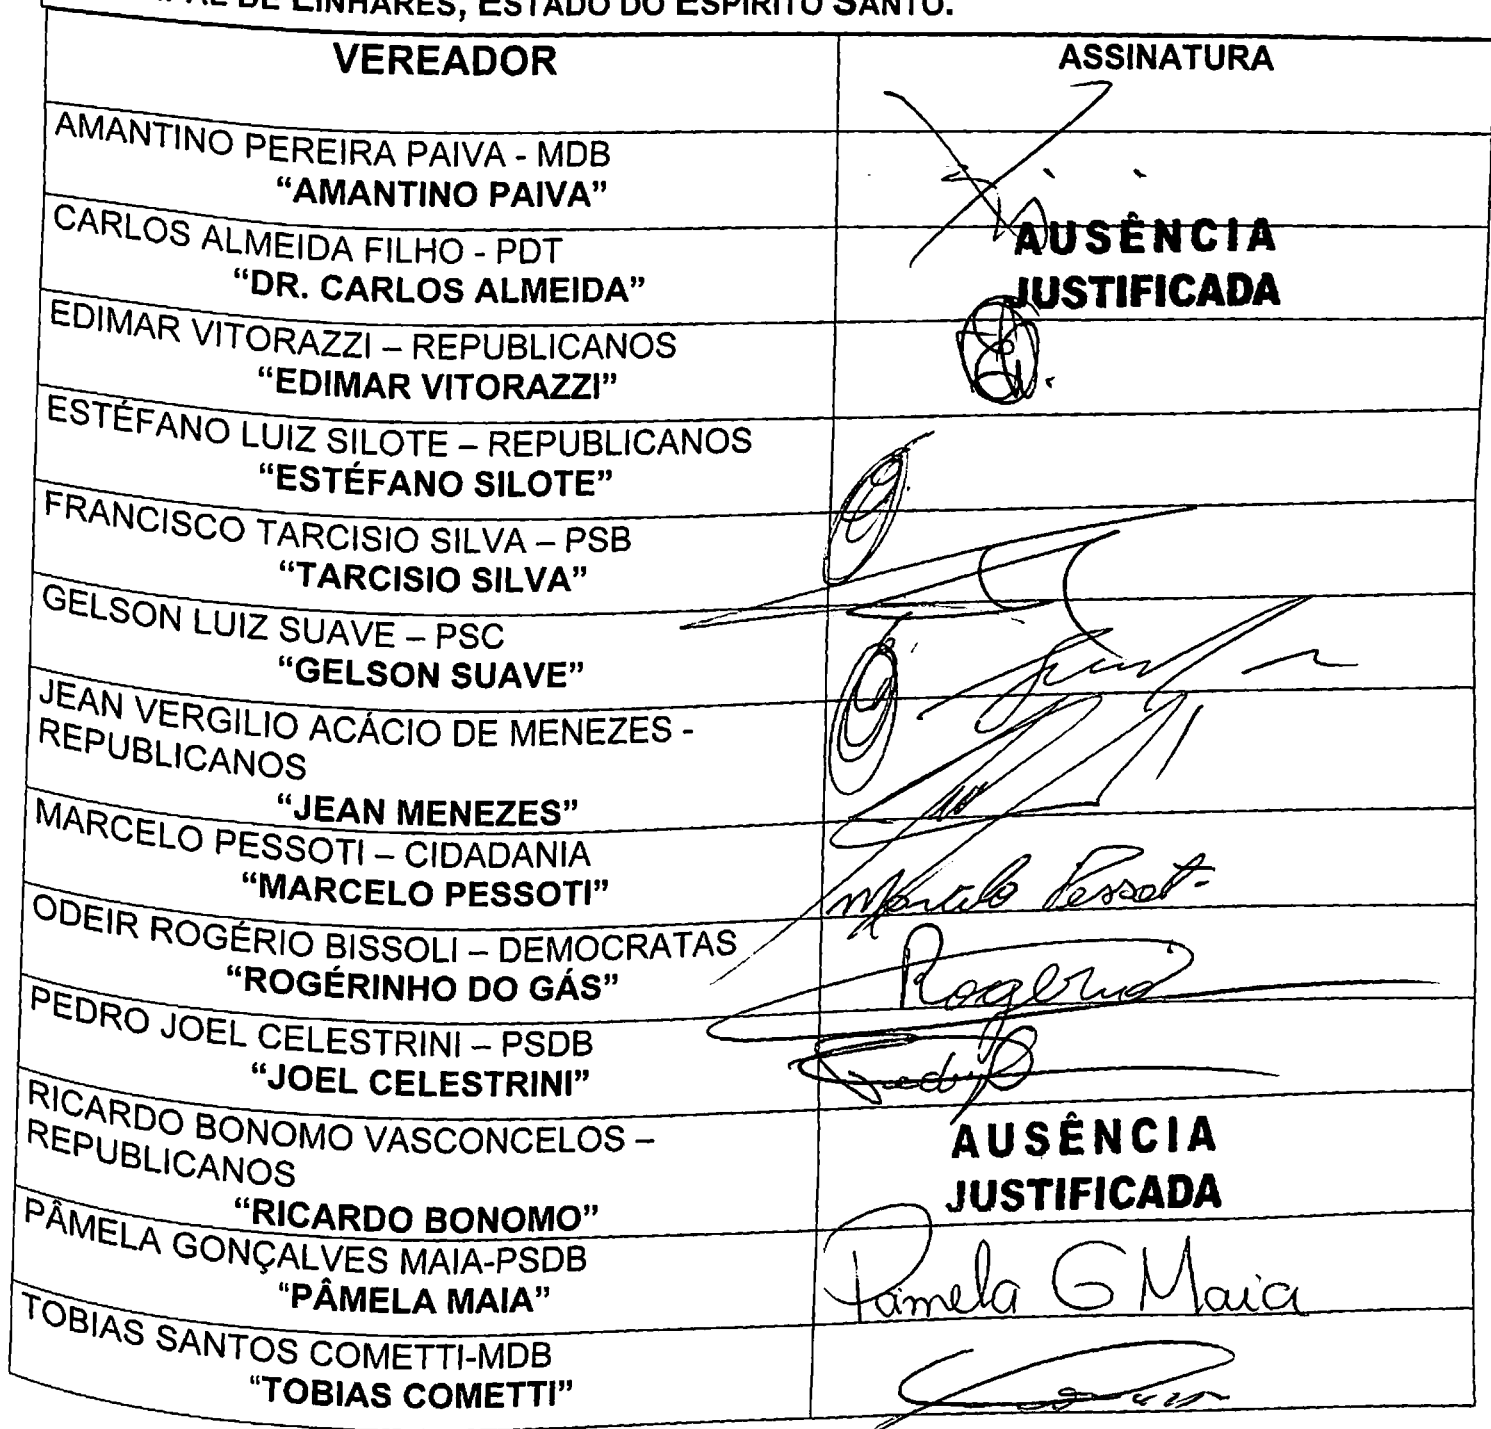 DE LINHARES, ESTADO DO ESPÍRITO SANTO.
VEREADOR ASSINATURA
AMANTINO PEREIRA PAIVA - MDB
“AMANTINO PAIVA”
CARLOS ALMEIDA FILHO - PDT AUSÊNCIA
“DR. CARLOS ALMEIDA” JUSTIFICADA
EDIMAR VITORAZZI – REPUBLICANOS
“EDIMAR VITORAZZI”
ESTÉFANO LUIZ SILOTE – REPUBLICANOS
“ESTÉFANO SILOTE”
FRANCISCO TARCISIO SILVA – PSB
“TARCISIO SILVA”
GELSON LUIZ SUAVE – PSC
“GELSON SUAVE”
JEAN VERGILIO ACÁCIO DE MENEZES -
REPUBLICANOS
“JEAN MENEZES”
MARCELO PESSOTI – CIDADANIA
“MARCELO PESSOTI” Marcelo Pessoti
ODEIR ROGÉRIO BISSOLI – DEMOCRATAS
“ROGÉRINHO DO GÁS” Rogério
PEDRO JOEL CELESTRINI – PSDB
“JOEL CELESTRINI”
RICARDO BONOMO VASCONCELOS – AUSÊNCIA
REPUBLICANOS JUSTIFICADA
“RICARDO BONOMO”
PÂMELA GONÇALVES MAIA-PSDB Pâmela G Maia
“PÂMELA MAIA”
TOBIAS SANTOS COMETTI-MDB
“TOBIAS COMETTI”